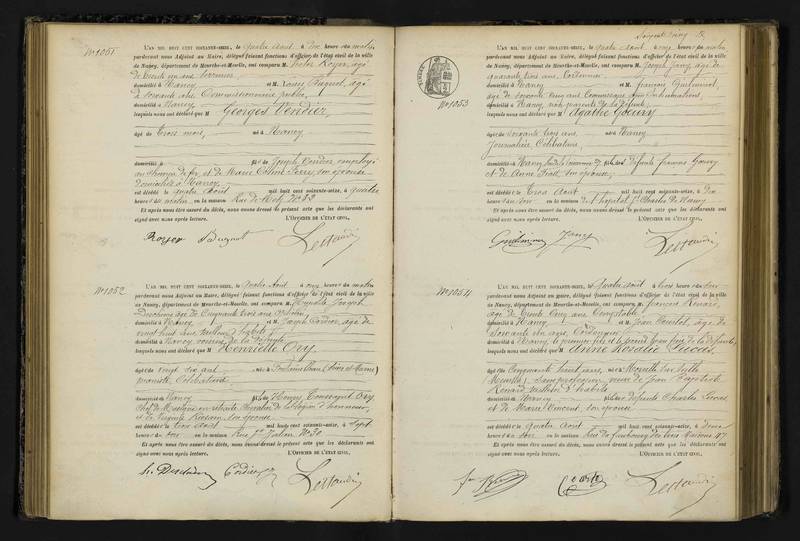 No 1051
L'AN MIL HUIT CENT SOIXANTE-SEIZE, le quatre août à dix heures du matin
pardevant nous Adjoint au Maire, délégué faisant fonctions d'officier de l'état civil de la ville
de Nancy, département de Meurthe-et-Moselle, ont comparu M. Royer, âgé
de trente un ans
domicilié à Nancy et M. Louis Buquet, âgé
de soixante ans Commissionnaire public,
domicilié à Nancy
lesquels nous ont déclaré que M Georges Cordier,
âgé de trois mois, né à Nancy
domicilié à fils de Joseph Cordier, employé
au chemin de fer, et de Marie son épouse
domiciliés à Nancy
est décédé le quatre août mil huit cent soixante-seize, à quatre
heures du matin en la maison Rue de Metz No 83
Et après nous être assuré du décès, nous avons dressé le présent acte que les déclarants ont
signé avec nous après lecture. L'OFFICIER DE L'ÉTAT CIVIL,
Royer Buquet
No 1052
L'AN MIL HUIT CENT SOIXANTE-SEIZE, le quatre août à onze heures du matin
pardevant nous Adjoint au Maire, délégué faisant fonctions d'officier de l'état civil de la ville
de Nancy, département de Meurthe-et-Moselle, ont comparu M. Hippolyte Joseph
âgé de cinquante trois ans
domicilié à Nancy et M. Joseph Cordier, âgé de
vingt huit ans tailleur d'habits
domicilié à Nancy voisins de la défunte
lesquels nous ont déclaré que M Henriette Ory,
âgé de vingt six ans née à Fontainebleau (Seine et Marne)
célibataire
domicilié à Nancy fille de Toussaint Ory
Chef de Musique en retraite Chevalier de la légion d'honneur,
et de son épouse
est décédé le trois août mil huit cent soixante-seize, à sept
heures du soir en la maison Rue St Julien No 30
Et après nous être assuré du décès, nous avons dressé le présent acte que les déclarants ont
signé avec nous après lecture. L'OFFICIER DE L'ÉTAT CIVIL,
Cordier
No 1053
L'AN MIL HUIT CENT SOIXANTE-SEIZE, le quatre août à onze heures du matin
pardevant nous Adjoint au Maire, délégué faisant fonctions d'officier de l'état civil de la ville
de Nancy, département de Meurthe-et-Moselle, ont comparu M. Joseph Jany âgé de
quarante trois ans,
domicilié à Nancy et M. François Guilminot,
âgé de soixante cinq ans Commissaire aux Inhumations,
domicilié à Nancy, non parents de la défunte
lesquels nous ont déclaré que M Agathe Goury
âgé de soixante cinq ans, née à Nancy
Journalière Célibataire,
domicilié à Nancy fille de défunts François Goury
et de Anne son épouse,
est décédé le trois août mil huit cent soixante-seize, à dix
heures du soir en la maison de l'hôpital St Charles de Nancy
Et après nous être assuré du décès, nous avons dressé le présent acte que les déclarants ont
signé avec nous après lecture. L'OFFICIER DE L'ÉTAT CIVIL,
Guilminot Jany
No 1054
L'AN MIL HUIT CENT SOIXANTE-SEIZE, le quatre août à trois heures du soir
pardevant nous Adjoint au Maire, délégué faisant fonctions d'officier de l'état civil de la ville
de Nancy, département de Meurthe-et-Moselle, ont comparu M. François Renard
âgé de trente cinq ans Comptable
domicilié à Nancy et M. Jean
soixante six ans, Cordonnier
domicilié à Nancy, le premier fils et le second beau frère de la défunte,
lesquels nous ont déclaré que M Anne Rosalie
âgé de cinquante huit ans, née à
(Meurthe) Sans profession veuve de Jean Baptiste
Renard tailleur d'habits
domicilié à Nancy fille de défunts Charles
et de Marie Vincent, son épouse
est décédé le quatre août mil huit cent soixante-seize, à
heures du soir en la maison Rue du faubourg des trois Maisons 47
Et après nous être assuré du décès, nous avons dressé le présent acte que les déclarants ont
signé avec nous après lecture. L'OFFICIER DE L'ÉTAT CIVIL,